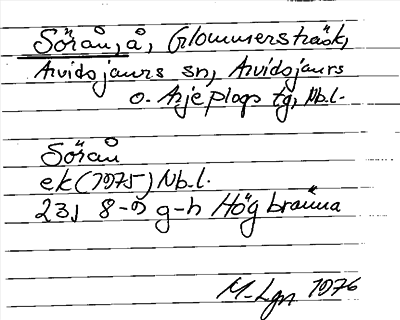 Sörån, å, Glommersträsk,
Arvidsjaurs sn, Arvidsjaurs
o. Arjeplogs tg, Nb.l.
Sörån
ek (1975) Nb.l.
23J 8-9 g-h Högbränna
M. Lgn 1976